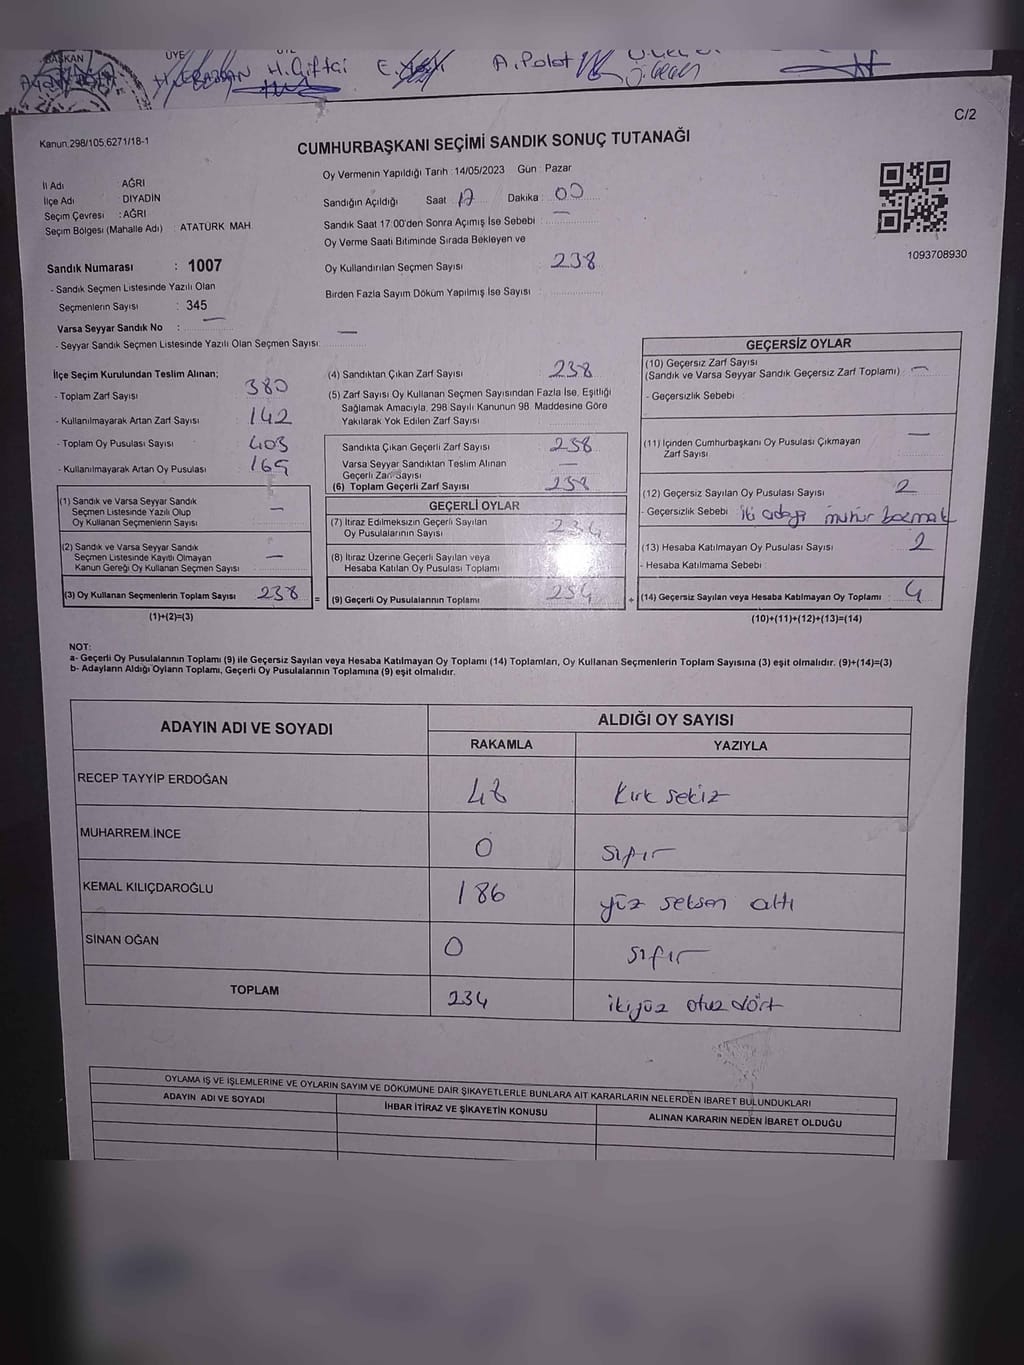 BAŞKAN
ÜYE
H.Çiftçi
A.Polat
C/2
Kanun.298/105,6271/18-1
CUMHURBAŞKANI SEÇİMİ SANDIK SONUÇ TUTANAĞI
İl Adı AĞRI
İlçe Adı DİYADİN
Seçim Çevresi : AĞRI
Seçim Bölgesi (Mahalle Adı) : ATATÜRK MAH.
Oy Vermenin Yapıldığı Tarih : 14/05/2023 Gün : Pazar
Sandığın Açıldığı Saat 17 Dakika : 00
Sandık Saat 17:00'den Sonra Açımış İse Sebebi : —
Oy Verme Saati Bitiminde Sırada Bekleyen ve
Oy Kullandırılan Seçmen Sayısı 238
Birden Fazla Sayım Döküm Yapılmış İse Sayısı :
1093708930
Sandık Numarası : 1007
- Sandık Seçmen Listesinde Yazılı Olan
Seçmenlerin Sayısı : 345
Varsa Seyyar Sandık No : —
- Seyyar Sandık Seçmen Listesinde Yazılı Olan Seçmen Sayısı: —
İlçe Seçim Kurulundan Teslim Alınan;
- Toplam Zarf Sayısı 380
- Kullanılmayarak Artan Zarf Sayısı 142
- Toplam Oy Pusulası Sayısı 403
- Kullanılmayarak Artan Oy Pusulası 165
(1) Sandık ve Varsa Seyyar Sandık
Seçmen Listesinde Yazılı Olup
Oy Kullanan Seçmenlerin Sayısı —
(2) Sandık ve Varsa Seyyar Sandık
Seçmen Listesinde Kayıtlı Olmayan
Kanun Gereği Oy Kullanan Seçmen Sayısı —
(3) Oy Kullanan Seçmenlerin Toplam Sayısı 238 =
(1)+(2)=(3)
(4) Sandıktan Çıkan Zarf Sayısı 238
(5) Zarf Sayısı Oy Kullanan Seçmen Sayısından Fazla İse, Eşitliği
Sağlamak Amacıyla, 298 Sayılı Kanunun 98. Maddesine Göre
Yakılarak Yok Edilen Zarf Sayısı
Sandıkta Çıkan Geçerli Zarf Sayısı 238
Varsa Seyyar Sandıktan Teslim Alınan
Geçerli Zarf Sayısı —
(6) Toplam Geçerli Zarf Sayısı 238
GEÇERLİ OYLAR
(7) İtiraz Edilmeksizin Geçerli Sayılan
Oy Pusulalarının Sayısı 234
(8) İtiraz Üzerine Geçerli Sayılan veya
Hesaba Katılan Oy Pusulası Toplamı
(9) Geçerli Oy Pusulalarının Toplamı 234 +
GEÇERSİZ OYLAR
(10) Geçersiz Zarf Sayısı
(Sandık ve Varsa Seyyar Sandık Geçersiz Zarf Toplamı) : —
- Geçersizlik Sebebi :
(11) İçinden Cumhurbaşkanı Oy Pusulası Çıkmayan
Zarf Sayısı —
(12) Geçersiz Sayılan Oy Pusulası Sayısı 2
- Geçersizlik Sebebi iki adaya mühür basmak
(13) Hesaba Katılmayan Oy Pusulası Sayısı 2
- Hesaba Katılmama Sebebi :
(14) Geçersiz Sayılan veya Hesaba Katılmayan Oy Toplamı : 4
(10)+(11)+(12)+(13)=(14)
NOT:
a- Geçerli Oy Pusulalarının Toplamı (9) ile Geçersiz Sayılan veya Hesaba Katılmayan Oy Toplamı (14) Toplamları, Oy Kullanan Seçmenlerin Toplam Sayısına (3) eşit olmalıdır. (9)+(14)=(3)
b- Adayların Aldığı Oyların Toplamı, Geçerli Oy Pusulalarının Toplamına (9) eşit olmalıdır.
ADAYIN ADI VE SOYADI
ALDIĞI OY SAYISI
RAKAMLA YAZIYLA
RECEP TAYYİP ERDOĞAN 48 kırk sekiz
MUHARREM İNCE 0 sıfır
KEMAL KILIÇDAROĞLU 186 yüz seksen altı
SİNAN OĞAN 0 sıfır
TOPLAM 234 ikiyüz otuz dört
OYLAMA İŞ VE İŞLEMLERİNE VE OYLARIN SAYIM VE DÖKÜMÜNE DAİR ŞİKAYETLERLE BUNLARA AİT KARARLARIN NELERDEN İBARET BULUNDUKLARI
ADAYIN ADI VE SOYADI İHBAR İTİRAZ VE ŞİKAYETİN KONUSU ALINAN KARARIN NEDEN İBARET OLDUĞU